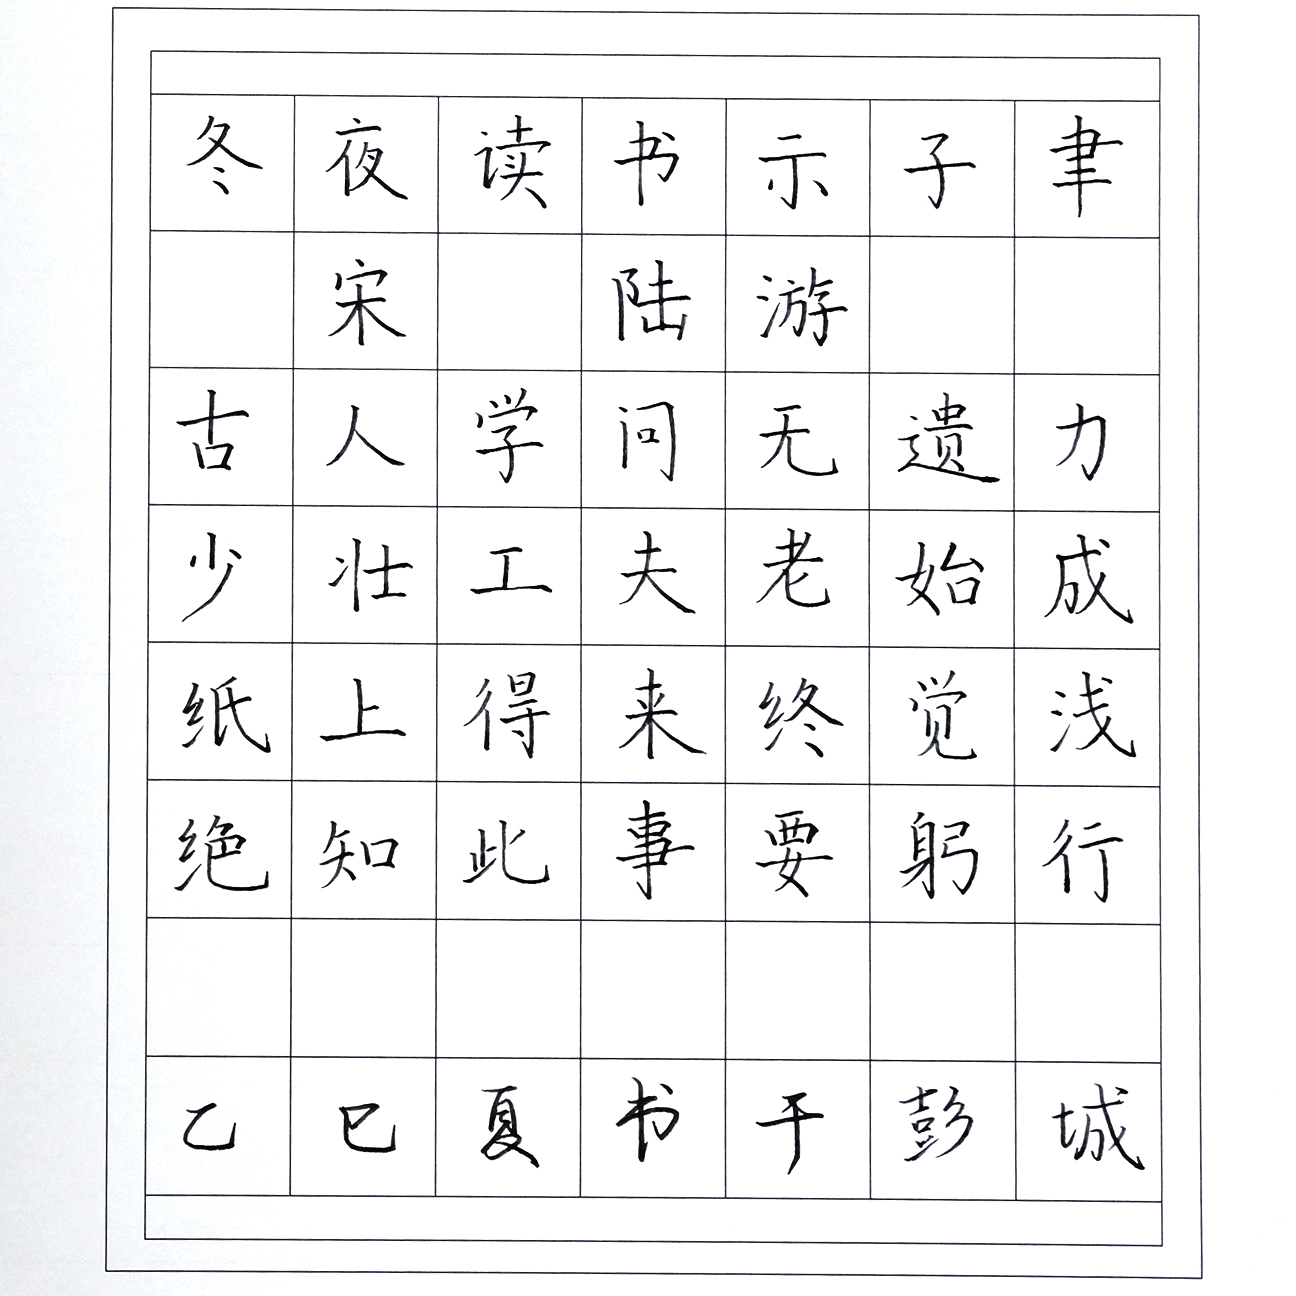 冬夜读书示子聿
宋 陆游
古人学问无遗力
少壮工夫老始成
纸上得来终觉浅
绝知此事要躬行
乙巳夏书于彭城